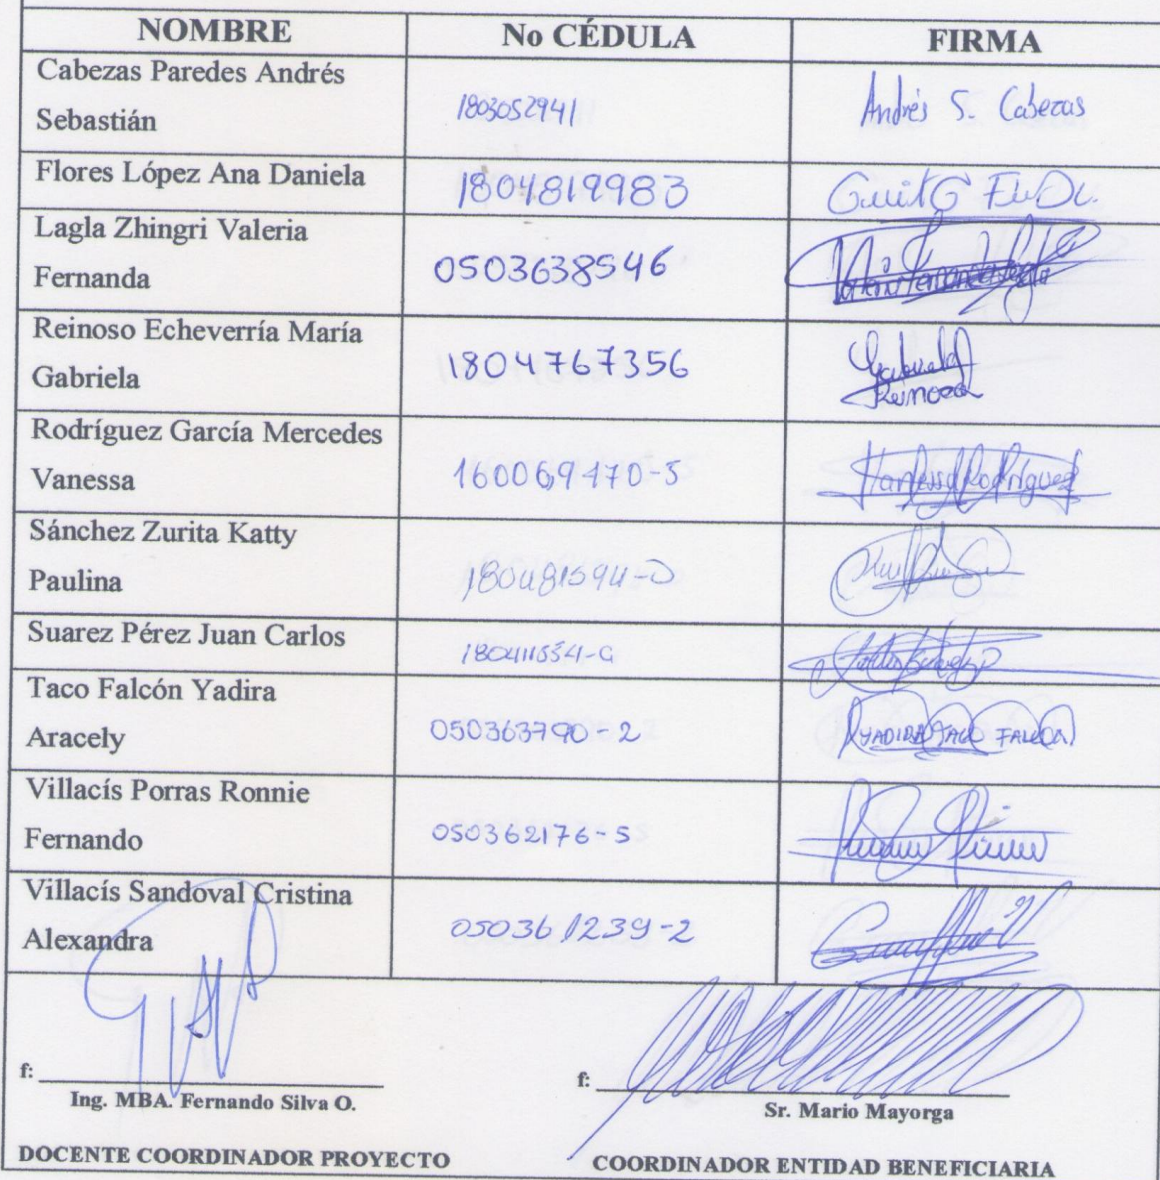 NOMBRE No CÉDULA FIRMA
Cabezas Paredes Andrés
Sebastián 1803052941 Andrés S. Cabezas
Flores López Ana Daniela 1804819983
Lagla Zhingri Valeria
Fernanda 0503638546
Reinoso Echeverría María
Gabriela 1804767356 Gabriela
Reinoso
Rodríguez García Mercedes
Vanessa 160069470-5 Vanessa Rodríguez
Sánchez Zurita Katty
Paulina 180481594-0
Suarez Pérez Juan Carlos
Taco Falcón Yadira
Aracely 050363790-2 YADIRA TACO FALCON
Villacís Porras Ronnie
Fernando 050362176-5
Villacís Sandoval Cristina
Alexandra 050361239-2
f: f:
Ing. MBA. Fernando Silva O. Sr. Mario Mayorga
DOCENTE COORDINADOR PROYECTO COORDINADOR ENTIDAD BENEFICIARIA